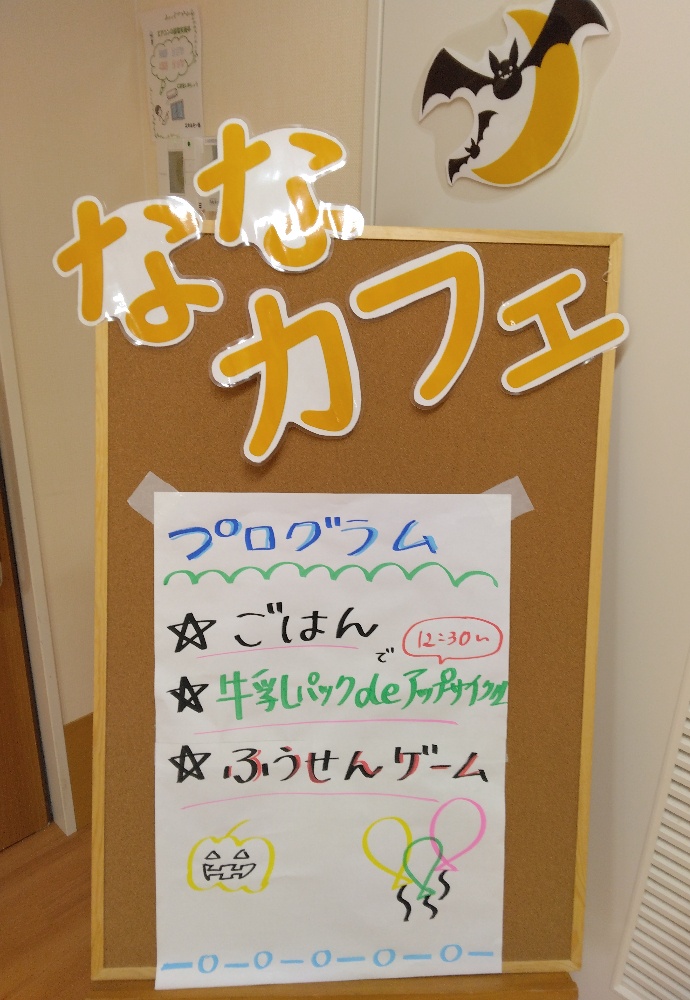 なな
カフェ
プログラム
☆ ごはん
で
12:30〜
☆ 牛乳パックdeアップサイクル
☆ ふうせんゲーム